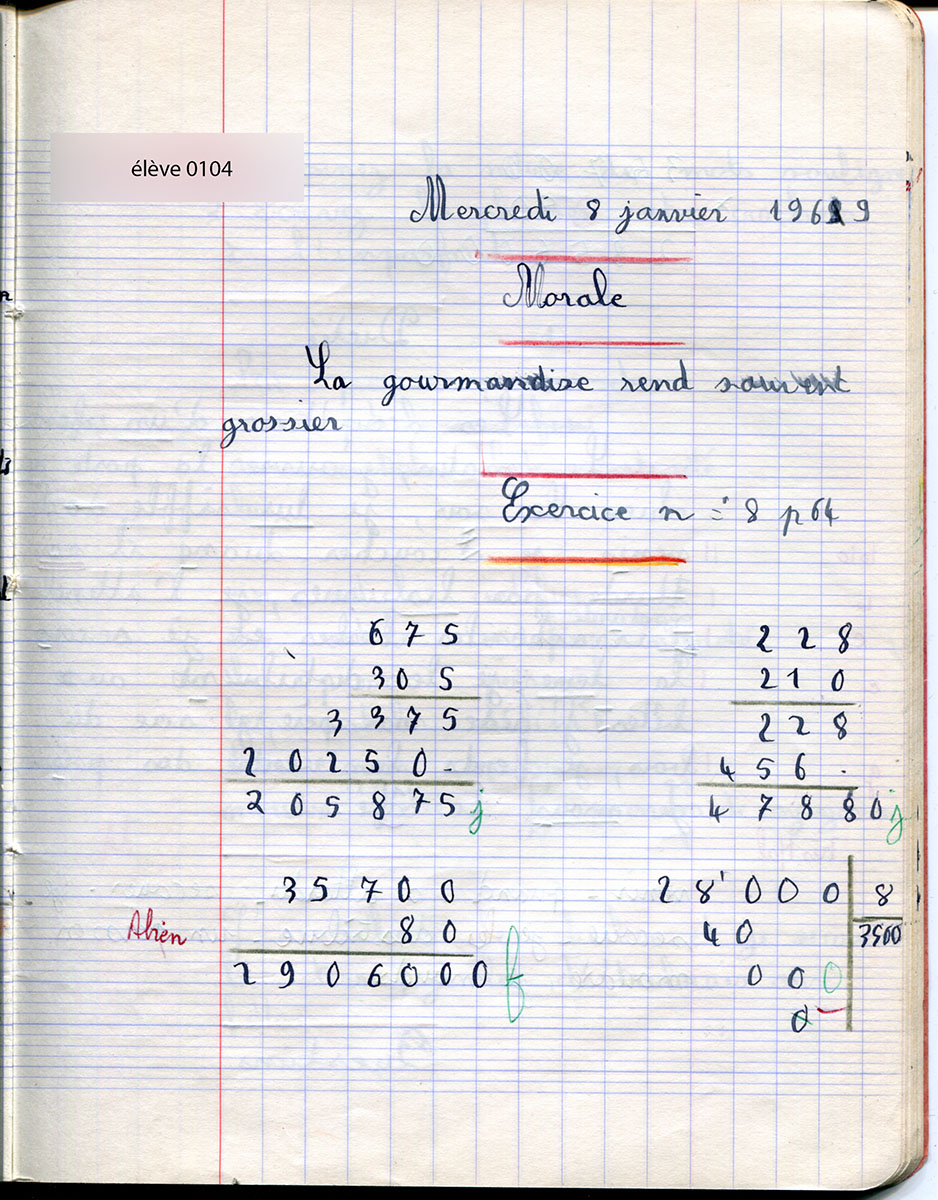 élève 0104
Mercredi 8 janvier 1969
Morale
La gourmandise rend souvent
grossier
Exercice n = 8 p 64
6 7 5
3 0 5
3 3 7 5
2 0 2 5 0 .
2 0 5 8 7 5 j
2 2 8
2 1 0
2 2 8
4 5 6 .
4 7 8 8 0 j
3 5 7 0 0
8 0
2 9 0 6 0 0 0 f
A bien
2 8' 0 0 0 8
4 0 3500
0 0 0
0